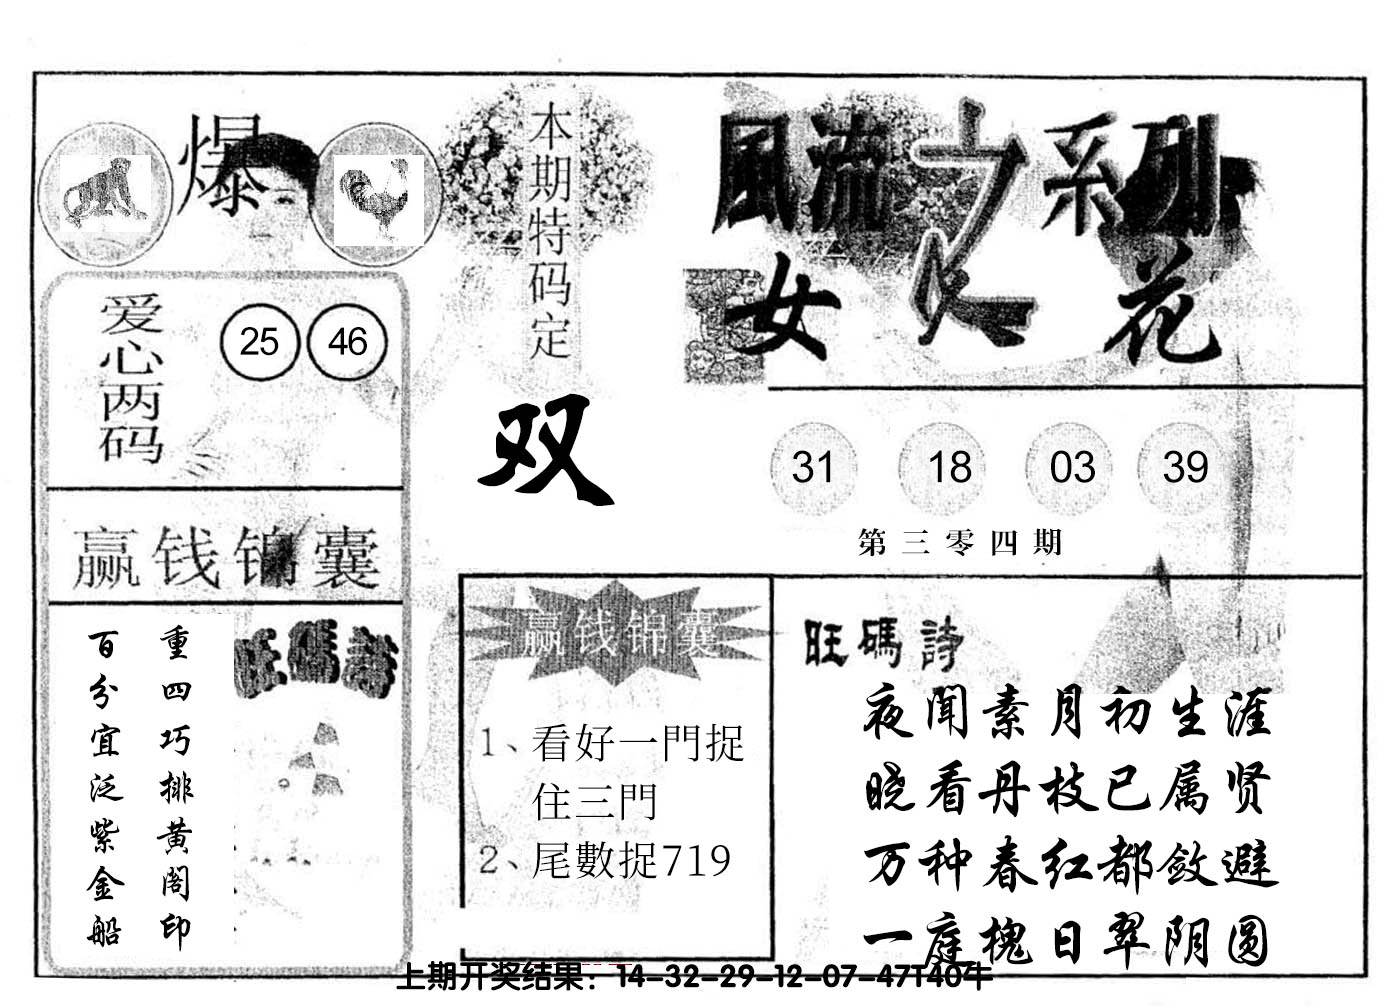 爆
本期特码定
双
風流之系列
女人花
爱心两码
25 46
31 18 03 39
第三零四期
赢钱锦囊
重四巧排黄阁印
百分宜泛紫金船
旺碼詩
赢钱锦囊
1、看好一門捉
住三門
2、尾數捉719
旺碼詩
夜闻素月初生涯
晓看丹枝已属贤
万种春红都敛避
一庭槐日翠阴圆
上期开奖结果：14-32-29-12-07-47T40牛